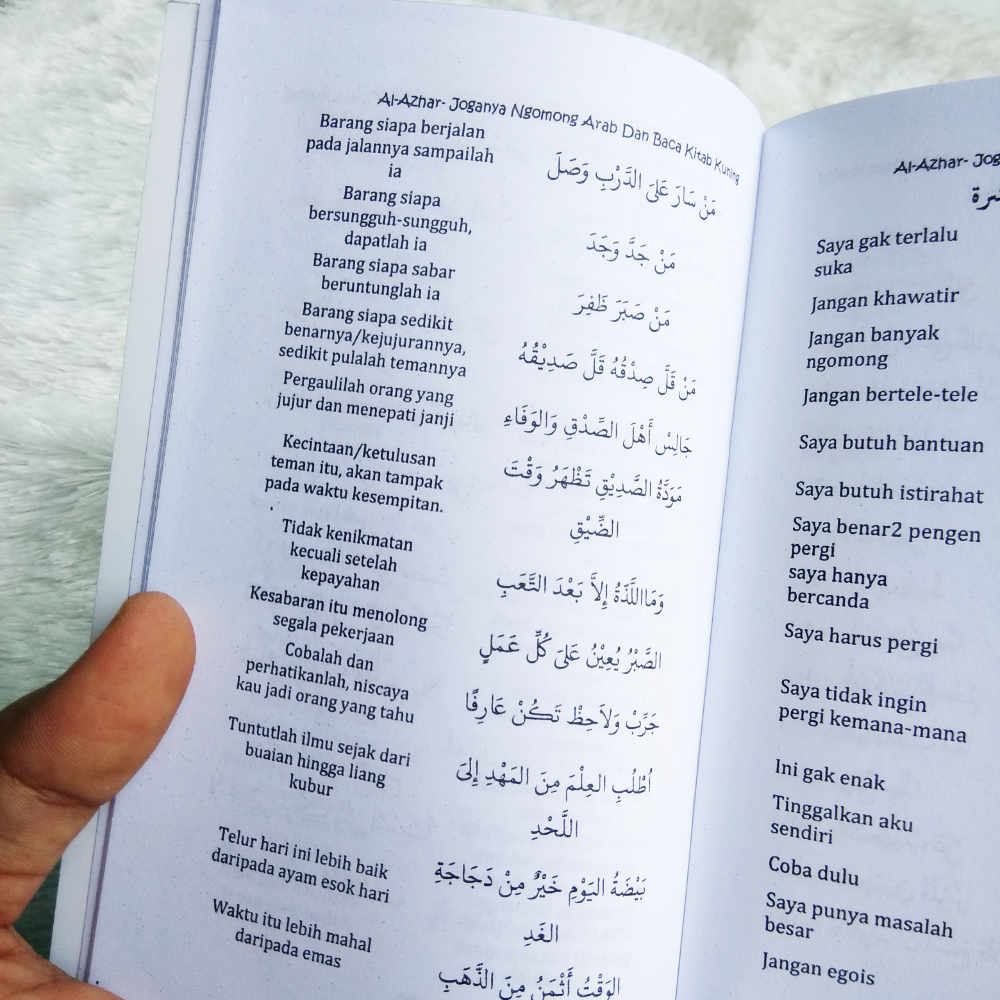 Al-Azhar- Joganya Ngomong Arab Dan Baca Kitab Kuning
Barang siapa berjalan
pada jalannya sampailah
ia
مَنْ سَارَ عَلىَ الدَّرْبِ وَصَلَ
Barang siapa
bersungguh-sungguh,
dapatlah ia
مَنْ جَدَّ وَجَدَ
Barang siapa sabar
beruntunglah ia
مَنْ صَبَرَ ظَفِرَ
Barang siapa sedikit
benarnya/kejujurannya,
sedikit pulalah temannya
مَنْ قَلَّ صِدْقُهُ قَلَّ صَدِيْقُهُ
Pergaulilah orang yang
jujur dan menepati janji
جَالِسْ أَهْلَ الصِّدْقِ وَالوَفَاءِ
Kecintaan/ketulusan
teman itu, akan tampak
pada waktu kesempitan.
مَوَدَّةُ الصَّدِيْقِ تَظْهَرُ وَقْتَ
الضِّيْقِ
Tidak kenikmatan
kecuali setelah
kepayahan
وَمَااللَّذَّةُ إِلاَّ بَعْدَ التَّعَبِ
Kesabaran itu menolong
segala pekerjaan
الصَّبْرُ يُعِيْنُ عَلىَ كُلِّ عَمَلٍ
Cobalah dan
perhatikanlah, niscaya
kau jadi orang yang tahu
جَرِّبْ وَلاَحِظْ تَكُنْ عَارِفًا
Tuntutlah ilmu sejak dari
buaian hingga liang
kubur
اُطْلُبِ العِلْمَ مِنَ المَهْدِ إِلىَ
اللَّحْدِ
Telur hari ini lebih baik
daripada ayam esok hari
بَيْضَةُ اليَوْمِ خَيْرٌ مِنْ دَجَاجَةِ
الغَدِ
Waktu itu lebih mahal
daripada emas
الوَقْتُ أَثْمَنُ مِنَ الذَّهَبِ
Al-Azhar-
Saya gak terlalu
suka
Jangan khawatir
Jangan banyak
ngomong
Jangan bertele-tele
Saya butuh bantuan
Saya butuh istirahat
Saya benar2 pengen
pergi
saya hanya
bercanda
Saya harus pergi
Saya tidak ingin
pergi kemana-mana
Ini gak enak
Tinggalkan aku
sendiri
Coba dulu
Saya punya masalah
besar
Jangan egois